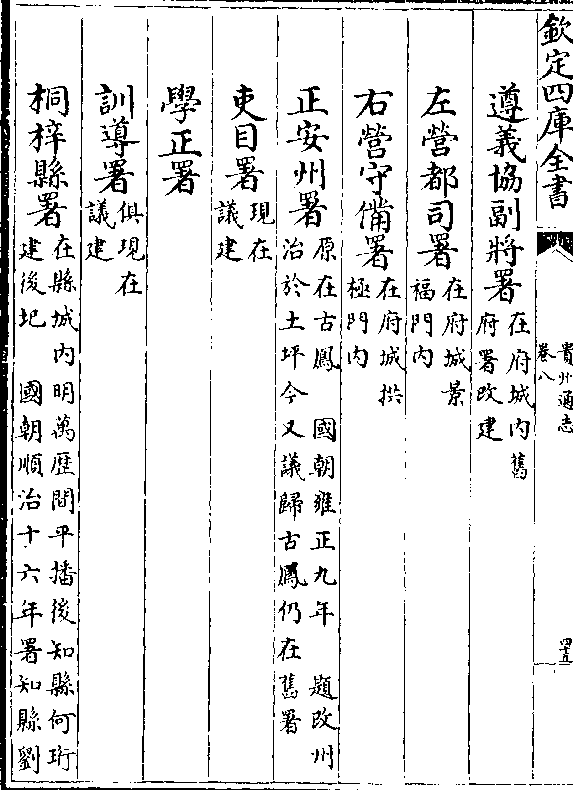 欽定四庫全書
貴州通志
卷八
四五
遵義協副將署在府城内舊
府署改建
左營都司署在府城景
福門内
右營守備署在府城拱
極門内
正安州署原在古鳳 國朝雍正九年 題改州
治於土坪今又議歸古鳳仍在舊署
吏目署現在
議建
學正署
訓導署俱現在
議建
桐梓縣署在縣城内明萬歷間平播後知縣何珩
建後圯 國朝順治十六年署知縣劉